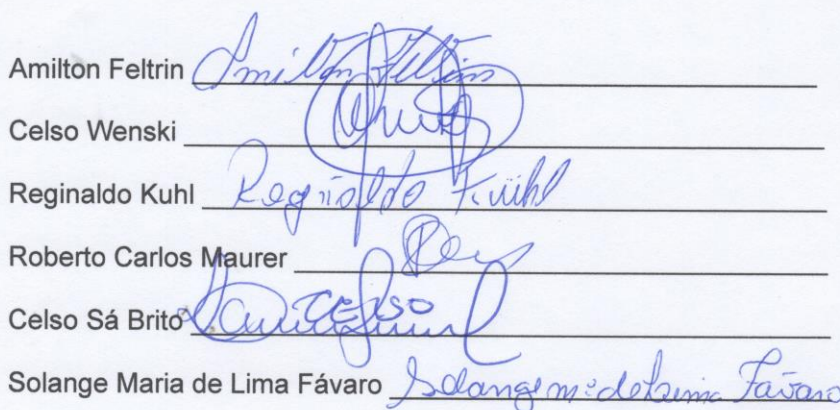 Amilton Feltrin Amilton Feltrin
Celso Wenski
Reginaldo Kuhl Reginaldo Kuühl
Roberto Carlos Maurer
Celso Sá Brito CELSO
Solange Maria de Lima Fávaro Solange Mª de Lima Fávaro